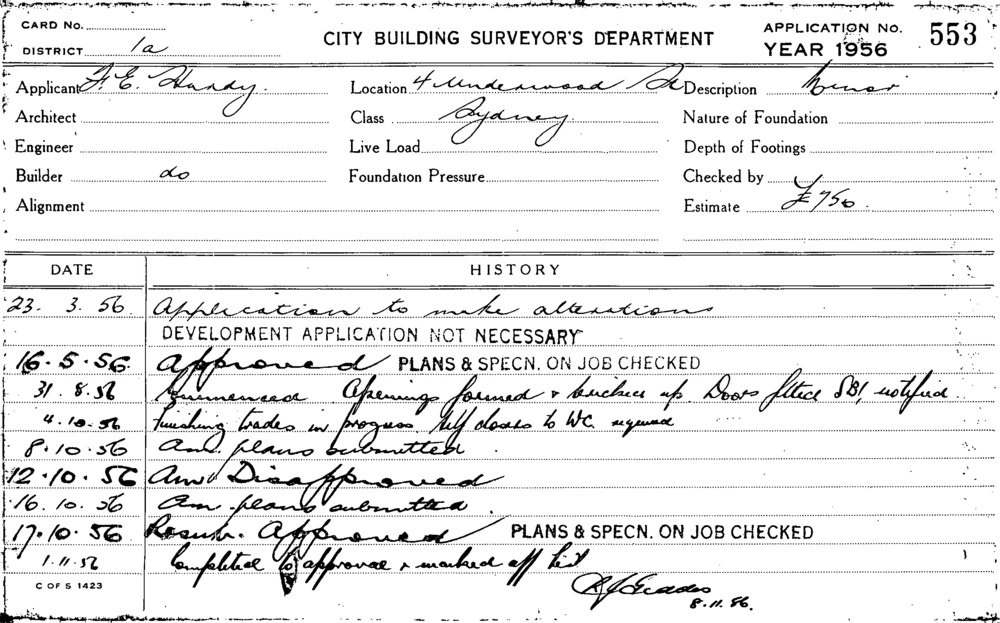 CARD No. APPLICATION No. 553
DISTRICT 1a CITY BUILDING SURVEYOR'S DEPARTMENT YEAR 1956
Applicant F. E. Hardy. Location 4 Underwood St Description Minor
Architect Class Sydney Nature of Foundation
Engineer Live Load Depth of Footings
Builder do Foundation Pressure Checked by
Alignment Estimate £750.
DATE HISTORY
23. 3. 56 Application to make alterations
DEVELOPMENT APPLICATION NOT NECESSARY
16.5.56. Approved PLANS & SPECN. ON JOB CHECKED
31. 8. 56 Commenced Openings formed & bricked up. Doors fitted notified
4.10.56 Finishing trades in progress. Self closers to WC. required
8.10.56 Am. plans submitted.
12.10.56 Am. Disapproved
16.10.56 Am. plans submitted.
17.10.56 Resub. Approved PLANS & SPECN. ON JOB CHECKED
1.11.56 Completed to approval & marked off list
C OF S 1423
8.11.56.